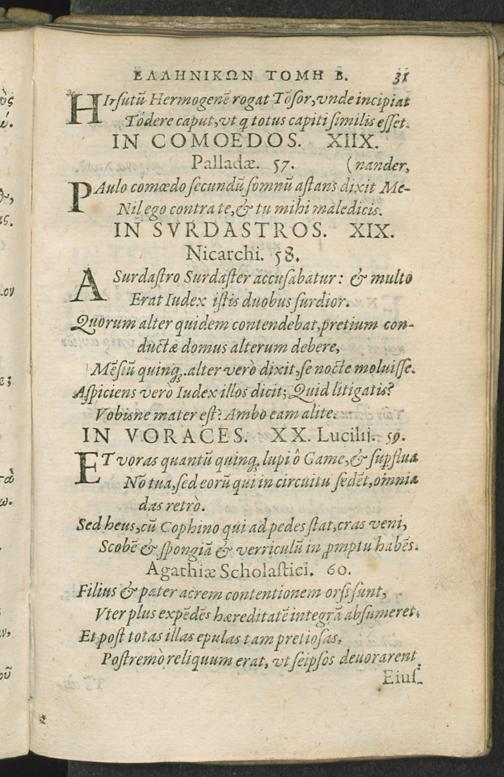 ΕΛΛΗΝΙΚΩΝ ΤΟΜΗ Β. 31
HIrsutũ Hermogenẽ rogat Tõsor, vnde incipiat
Tõdere caput, vt q totus capiti similis esset.
IN COMOEDOS. XIIX.
Palladæ. 57. (nander,
PAulo comœdo secundũ somnũ astans dixit Me-
Nil ego contra te, & tu mihi maledicis.
IN SVRDASTROS. XIX.
Nicarchi. 58.
A Surdastro Surdaster accusabatur: & multo
Erat Iudex istis duobus surdior.
Quorum alter quidem contendebat, pretium con-
ductæ domus alterum debere,
Mẽsiũ quinq, alter verò dixit, se nocte moluisse.
Aspiciens verò Iudex illos dicit; Quid litigatis?
Vobisne mater est? Ambo eam alite.
IN VORACES. XX. Lucilij. 59.
ET voras quantũ quinq, lupi ô Game, & supflua
Nõ tua, sed eorũ qui in circuitu sedẽt, omnia
das retrò.
Sed heus, cũ Cophino qui ad pedes stat, cras veni,
Scobẽ & spongiã & verriculũ in pmptu habẽs.
Agathiæ Scholastici. 60.
Filius & pater acrem contentionem orsi sunt,
Vter plus expẽdẽs hæreditatẽ integrã absumeret.
Et post totas illas epulas tam pretiosas,
Postremò reliquum erat, vt seipsos deuorarent
Eius-